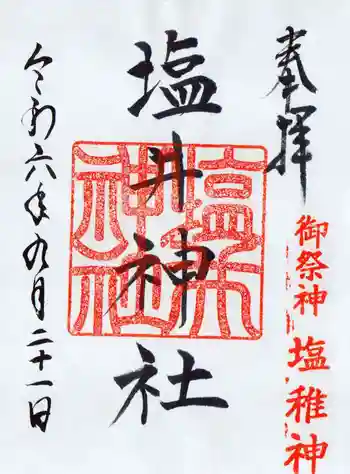 奉拝
御祭神 塩稚神
塩井神社
令和六年九月二十一日